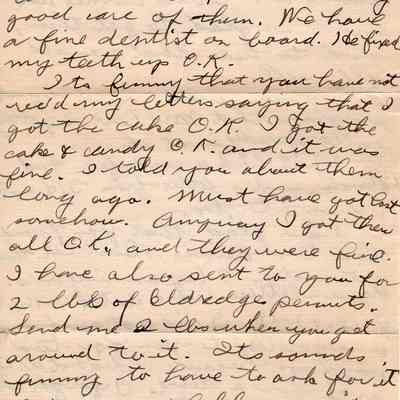 good care of them. We have
a fine dentist on board. He fixed
my teeth up O.K.
Its funny that you have not
rec'd my letters saying that I
got the cake O.K. I got the
cake & candy O.K. and it was
fine. I told you about them
long ago. Must have got lost
somehow. Anyway I got them
all O.K., and they were fine.
I have also sent to you for
2 lbs of Eldredge penuts.
Send me 2 lbs when you get
around to it. Its sounds
funny to have to ask for it